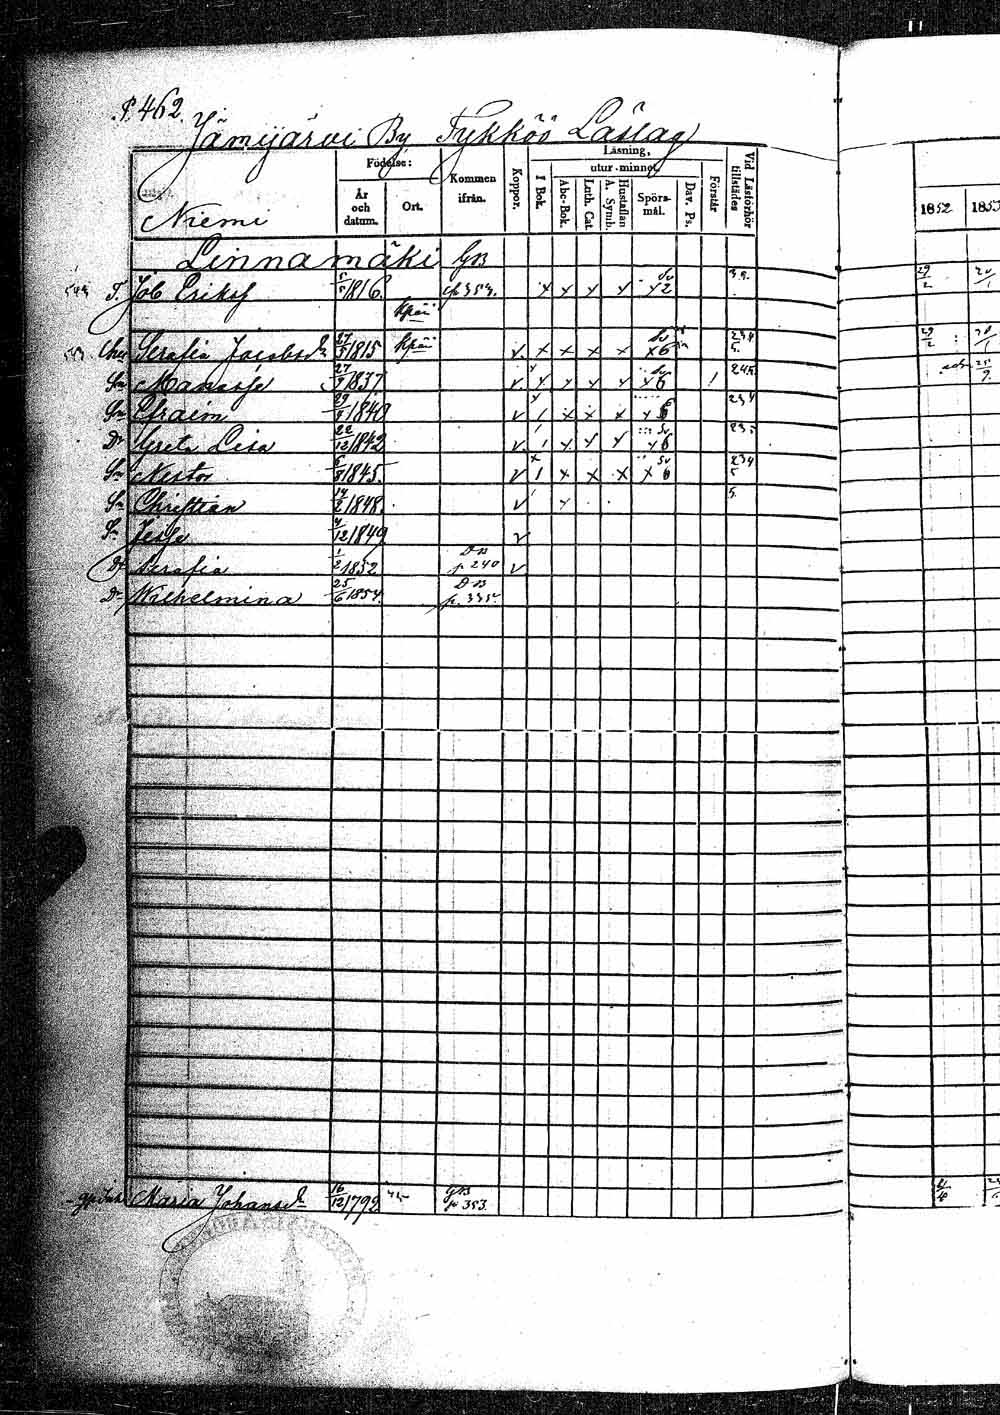 P. 462.
Jämijärvi By Tykköö Läslag
Niemi
Födelse:
År och datum.
Ort.
Kommen ifrån.
Koppor.
Läsning,
I Bok.
utur-minnet.
Abc-Bok.
Luth. Cat.
A. Symb.
Hustaflan
Spörsmål.
Dav. Ps.
Förstår
Vid Läsförhör tillstädes
1852 1853
Linnamäki GB
T. Job Eriksf 5/5 1816. p 353. x x x x x 2
Kpää
Serafia Jacobsd 27/5 1815 Kpää v. x x x x x 6 234 5.
Sn Manasse 27/9 1837 v x x x x x 6 / 245
Sn Efraim 29/9 1840 v / x x x x 6 234
Dr Greta Lisa 22/12 1842 v / x x x x 6 235
Sn Nestor 6/8 1845. v / x x x x 6 234 5
Sn Christian 14/2 1848. v x 5.
Sn Jesse 4/12 1849 v
Dr Serafia 1/2 1852 DB p 240 v
Dr Wilhelmina 25/6 1854. DB p. 335.
Maria Johansd 16/12 1792 GB p 353.